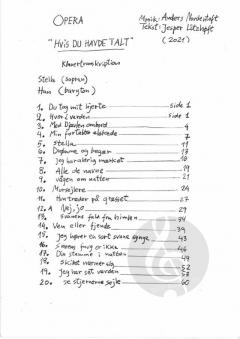 OPERA
Musik: Anders Nordentoft
Tekst: Jesper Lützhøft
(2021)
"HVIS DU HAVDE TALT"
Klavertranskription
Stella (sopran)
Han (baryton)
1. Du tog mit hjerte side 1
2. Hvor i verden side 1
3. Med Djævlen ombord 4
4. Min fortabte elskede 7
5. Stella 11
6. Dagene og bøger 17
7. Jeg har aldrig mærket 18
8. Alle de navne 19
9. Vågen om natten 21
10. Morsejlere 24
11. Hun træder på græsset 27
12.A Nej, jo 29
13. Svanens fald fra himlen 34
14. Ven eller fjende 39
15. Jeg hører en sort svane synge 43
16. Smeens frygt 46
17. Din stemme i natten 49
18. Skibet nærmer sig 52
19. Jeg har set verden 58
20. Se stjernerne sejle 60